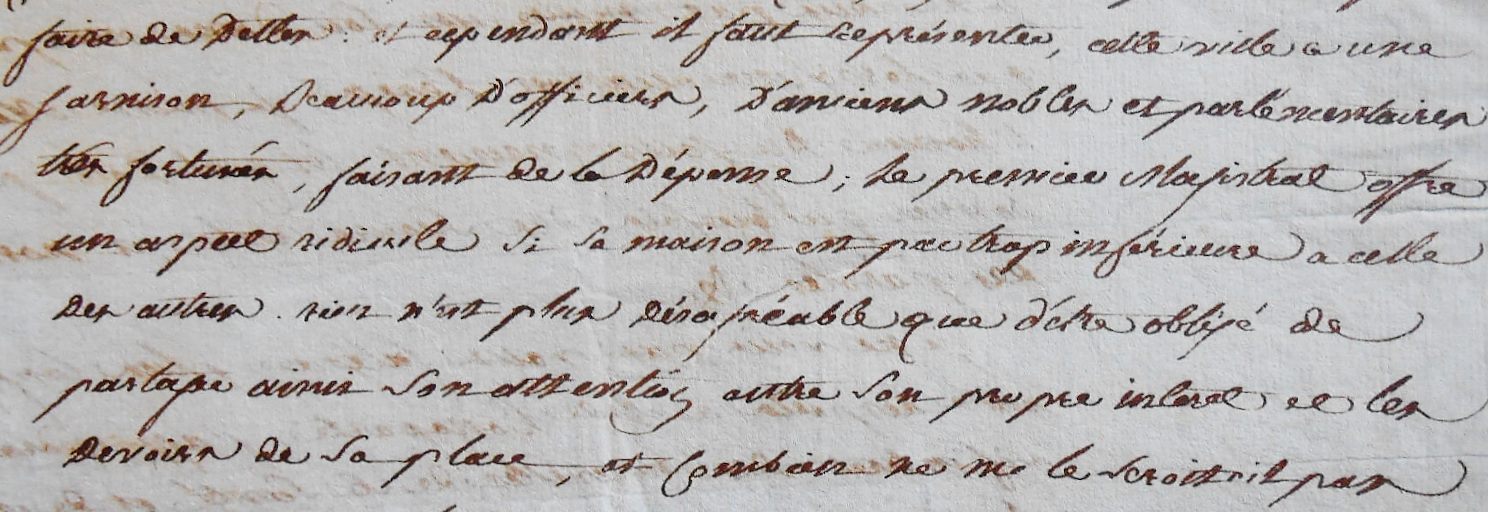 faire de Dettes : et cependant il faut représenter, cette ville a une
garnison, Beaucoup D'officiers, D'anciens nobles et parlementaires
très fortunés, faisant de la Dépense ; Le premier Magistrat offre
un aspect ridicule Si Sa maison est par trop inférieure a celle
Des autres. rien n'est plus Désagréable que d'être obligé de
partager ainsi Son attention entre Son propre interet et les
Devoirs de Sa place, et Combien ne me le Seroit il pas